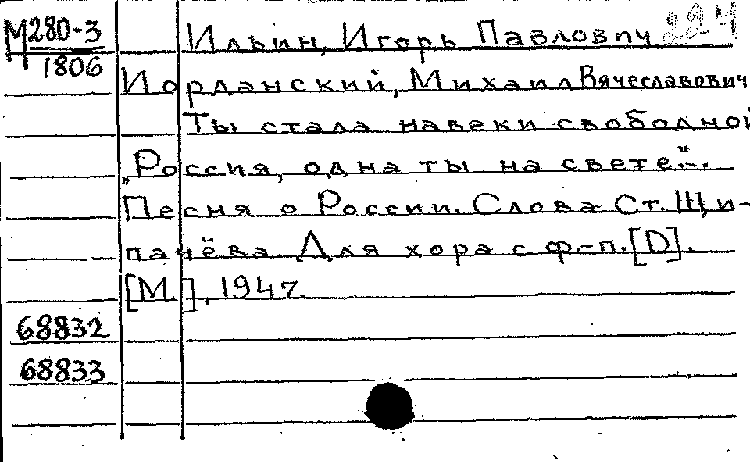 М280-3
1806
Ильин, Игорь Павлович
Иорданский, Михаил Вячеславович
Ты стала навеки свободной
„Россия, одна ты на свете"...
Песня о России. Слова Ст. Щи-
пачёва Для хора с ф.-п. [D].
[М.], 1947.
68832
68833